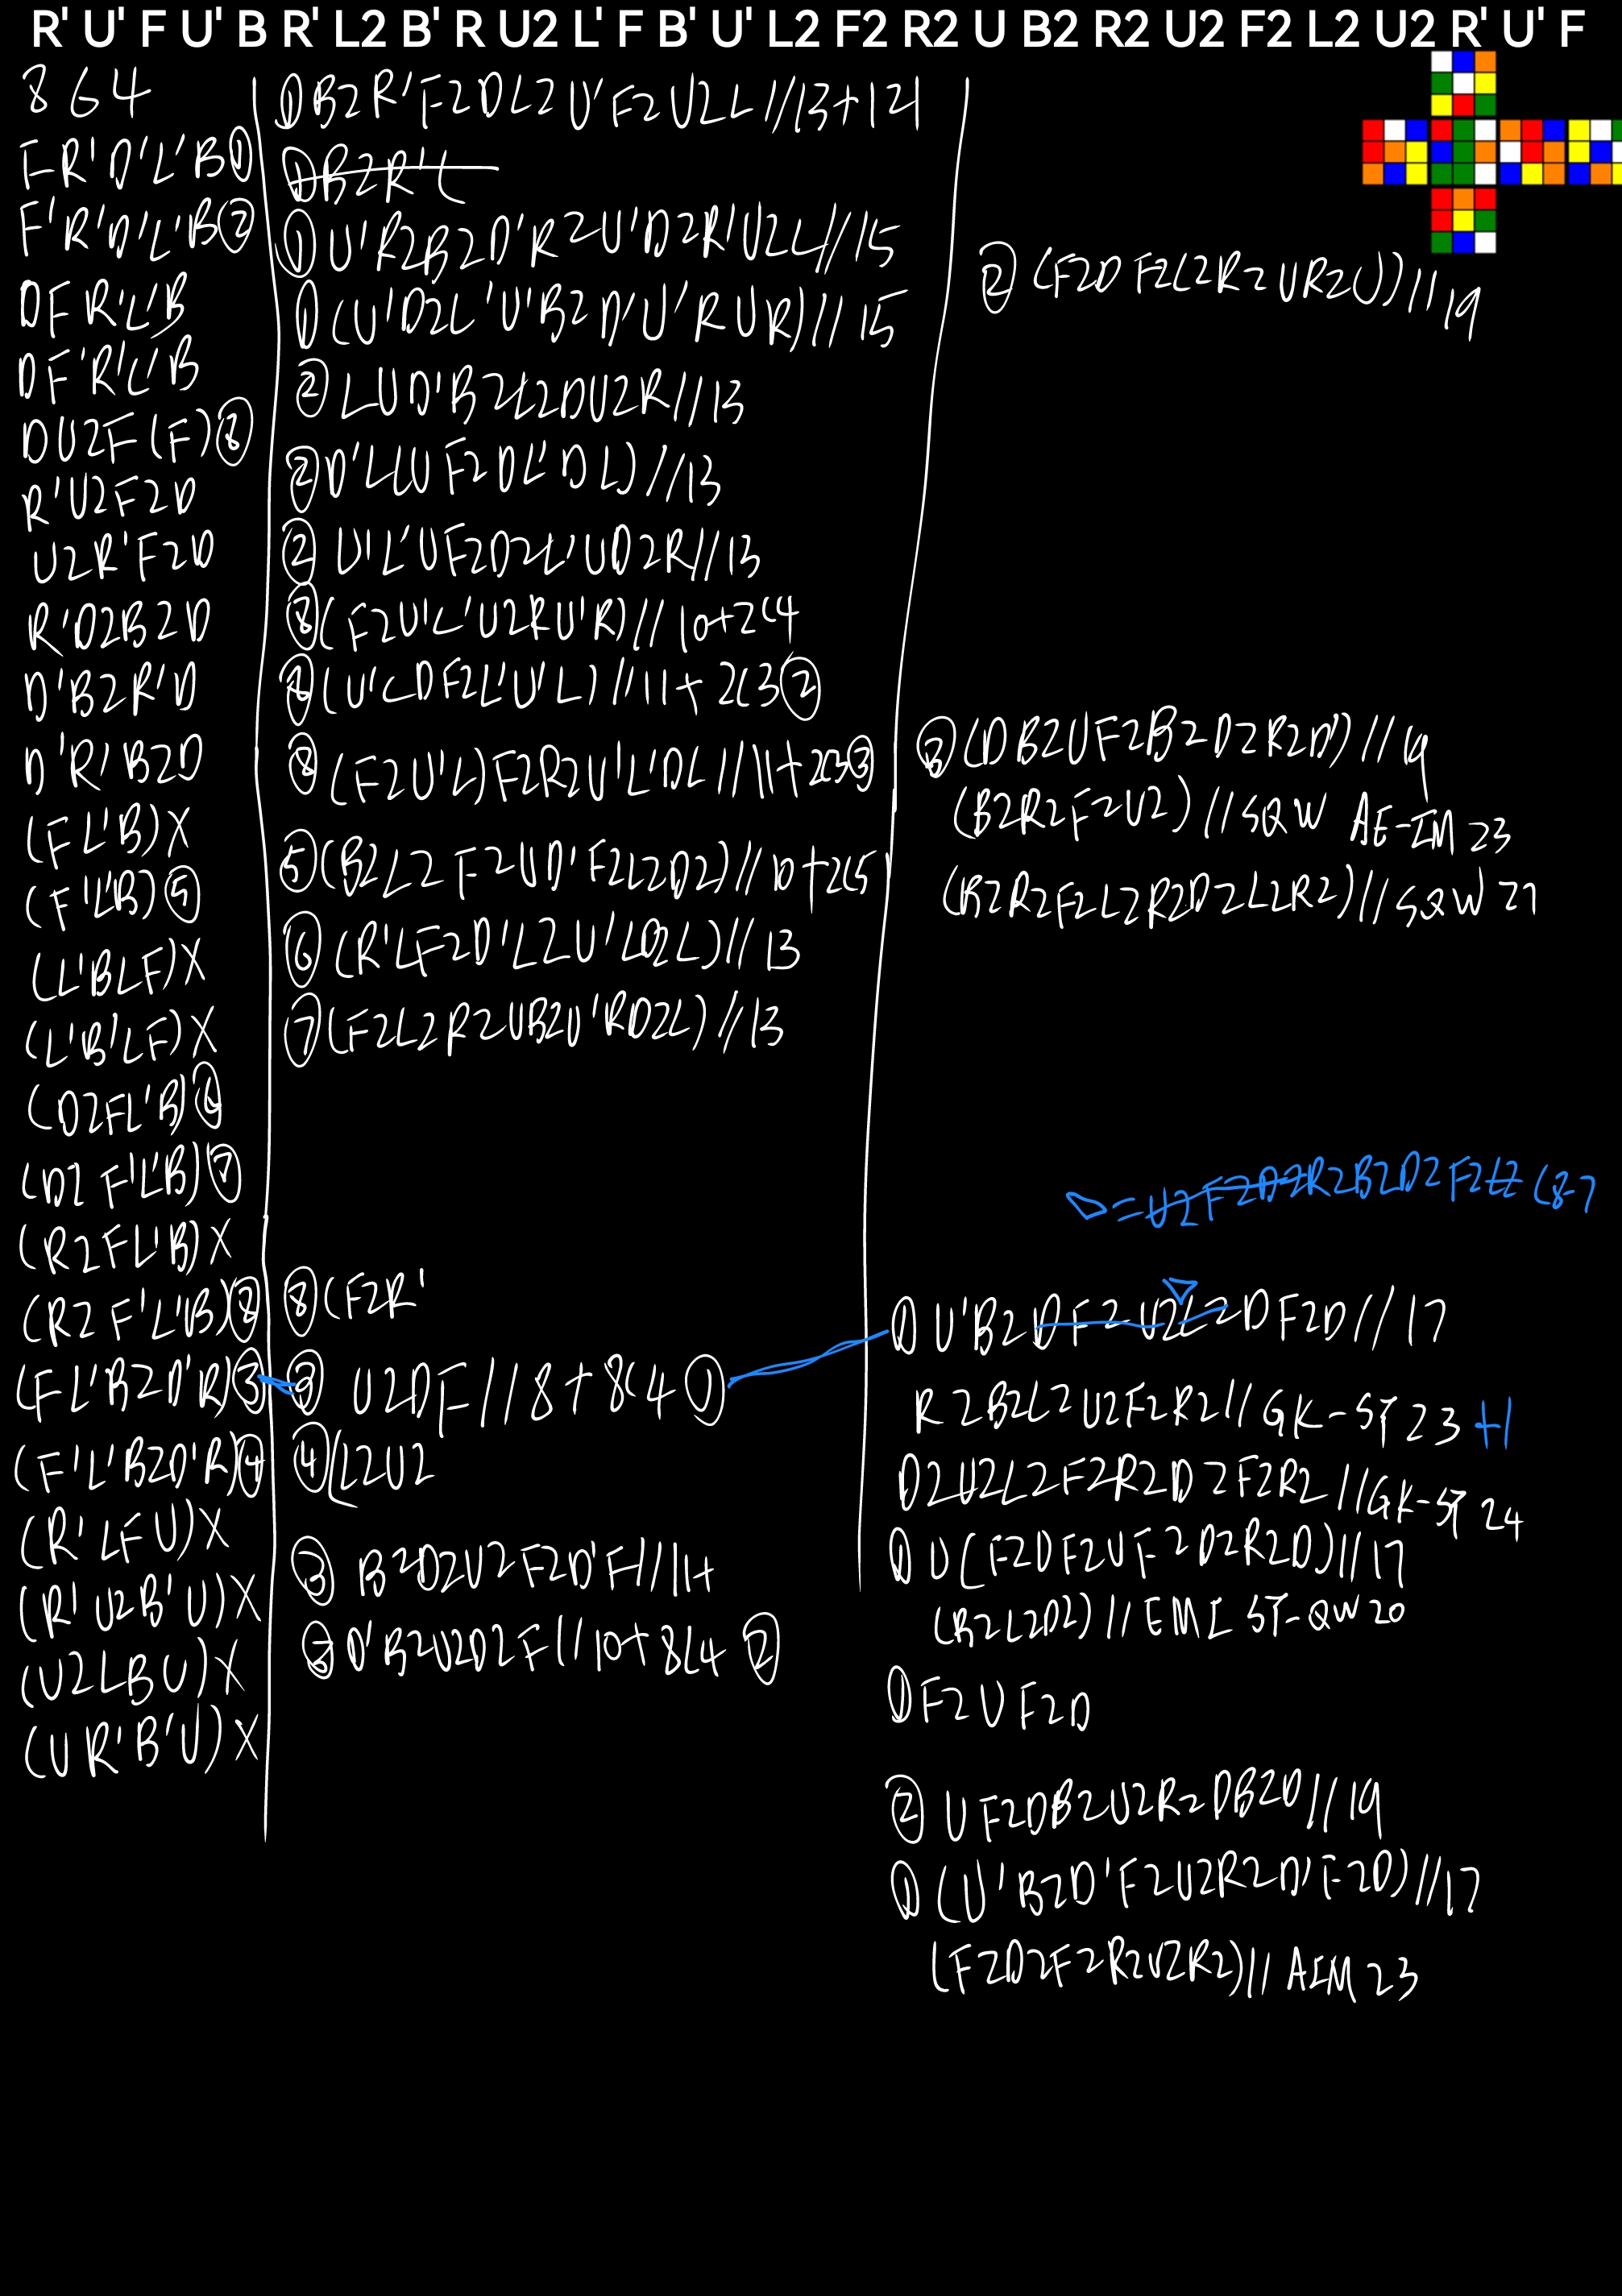 R' U' F U' B R' L2 B' R U2 L' F B' U' L2 F2 R2 U B2 R2 U2 F2 L2 U2 R' U' F
864
FR'D'L'B①
F'R'D'L'B②
DFR'L'B
DF'R'L'B
DU2F(F)⑧
R'U2F2D
U2R'F2D
R'D2B2D
D'B2R'D
D'R'B2D
(FL'B)X
(F'L'B)⑤
(L'BLF)X
(L'B'LF)X
(D2FL'B)⑥
(D2F'L'B)⑦
(R2FL'B)X
(R2F'L'B)⑧
(FL'B2D'R)③
(F'L'B2D'R)④
(R'LFU)X
(R'U2B'U)X
(U2LBU)X
(UR'B'U)X
①B2R'F2DL2U'F2U2L//13+121
①B2R'(
①U'R2B2D'R2U'D2R'U2L//15
①(U'D2L'U'B2D'U'RUR)//15
②LUD'B2L2DU2R//13
②D'L(UF2DL'DL)//13
②U'L'UF2D2L'UD2R//13
⑧(F2U'L'U2RU'R)//10+2C4
(U'LDF2L'U'L)//11+2C3②
⑧(F2U'L)F2R2U'L'DL//11+2C3③
⑤(B2L2F2UD'F2L2D2)//10+2C5
⑥(R'LF2D'L2U'LD2L)//13
⑦(F2L2R2UB2U'RD2L)//13
⑧(F2R'
③U2DF//8+8C4①
④(L2U2
③B2D2U2F2D'F//11+
③D'B2U2D2F//10+8C4②
②(F2DF2L2R2UR2U)//19
③(DB2UF2B2D2R2D')//19
(B2R2F2U2)//SQW AE-IM 23
(B2R2F2L2R2D2L2R2)//SQW 27
▷=U2F2D2R2B2D2F2L2(8-7
①U'B2DF2U2L2DF2D//17
R2B2L2U2F2R2//GK-ST 23 +1
D2U2L2F2R2D2F2R2//GK-ST 24
①U(F2DF2UF2D2R2D)//17
(R2L2D2)//EMI ST-QW 20
①F2UF2D
②UF2DB2U2R2DB2D//19
①(U'B2D'F2U2R2D'F2D)//17
(F2D2F2R2U2R2)//AIM 23